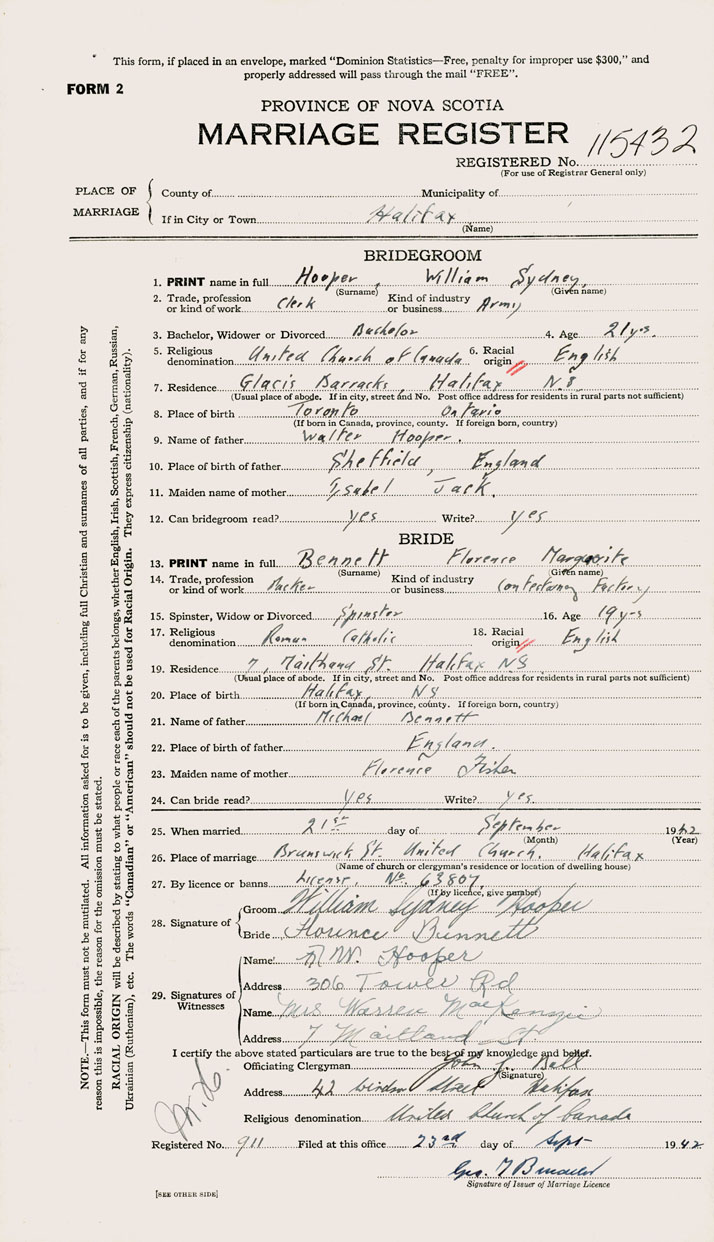 This form, if placed in an envelope, marked "Dominion Statistics—Free, penalty for improper use $300," and
properly addressed will pass through the mail "FREE".
FORM 2
PROVINCE OF NOVA SCOTIA
MARRIAGE REGISTER
REGISTERED No. 115432
(For use of Registrar General only)
PLACE OF MARRIAGE
County of Municipality of
If in City or Town Halifax
(Name)
BRIDEGROOM
1. PRINT name in full Hooper, William Sydney
(Surname) (Given name)
2. Trade, profession or kind of work Clerk Kind of industry or business Army
3. Bachelor, Widower or Divorced Bachelor 4. Age 21 yrs.
5. Religious denomination United Church of Canada 6. Racial origin English
7. Residence Glacis Barracks, Halifax N.S
(Usual place of abode. If in city, street and No. Post office address for residents in rural parts not sufficient)
8. Place of birth Toronto Ontario
(If born in Canada, province, county. If foreign born, country)
9. Name of father Walter Hooper.
10. Place of birth of father Sheffield, England
11. Maiden name of mother Isabel Jack.
12. Can bridegroom read? yes Write? yes
BRIDE
13. PRINT name in full Bennett Florence Marguerite
(Surname) (Given name)
14. Trade, profession or kind of work Packer Kind of industry or business Factory
15. Spinster, Widow or Divorced Spinster 16. Age 19 yrs
17. Religious denomination Roman Catholic 18. Racial origin English
19. Residence 7, St. Halifax NS
(Usual place of abode. If in city, street and No. Post office address for residents in rural parts not sufficient)
20. Place of birth Halifax, NS
(If born in Canada, province, county. If foreign born, country)
21. Name of father Michael Bennett
22. Place of birth of father England.
23. Maiden name of mother Florence Fisher
24. Can bride read? yes Write? yes.
25. When married 21st day of September 1942
(Month) (Year)
26. Place of marriage Brunswick St. United Church. Halifax
(Name of church or clergyman's residence or location of dwelling house)
27. By licence or banns License No. 63807.
(If by licence, give number)
28. Signature of
Groom William Sydney Hooper
Bride Florence Bennett
29. Signatures of Witnesses
Name W. Hooper
Address 306 Tower Rd
Name Mrs Warren MacKenzie
Address 7 Maitland St
I certify the above stated particulars are true to the best of my knowledge and belief.
Officiating Clergyman John J. Bell
(Signature)
Address 42 Street Halifax
Religious denomination United Church of Canada
Registered No. 911 Filed at this office 23rd day of Sept 1942
Geo.
Signature of Issuer of Marriage Licence
[SEE OTHER SIDE]
NOTE.—This form must not be mutilated. All information asked for is to be given, including full Christian and surnames of all parties, and if for any
reason this is impossible, the reason for the omission must be stated.
RACIAL ORIGIN will be described by stating to what people or race each of the parents belongs, whether English, Irish, Scottish, French, German, Russian,
Ukrainian (Ruthenian), etc. The words "Canadian" or "American" should not be used for Racial Origin. They express citizenship (nationality).